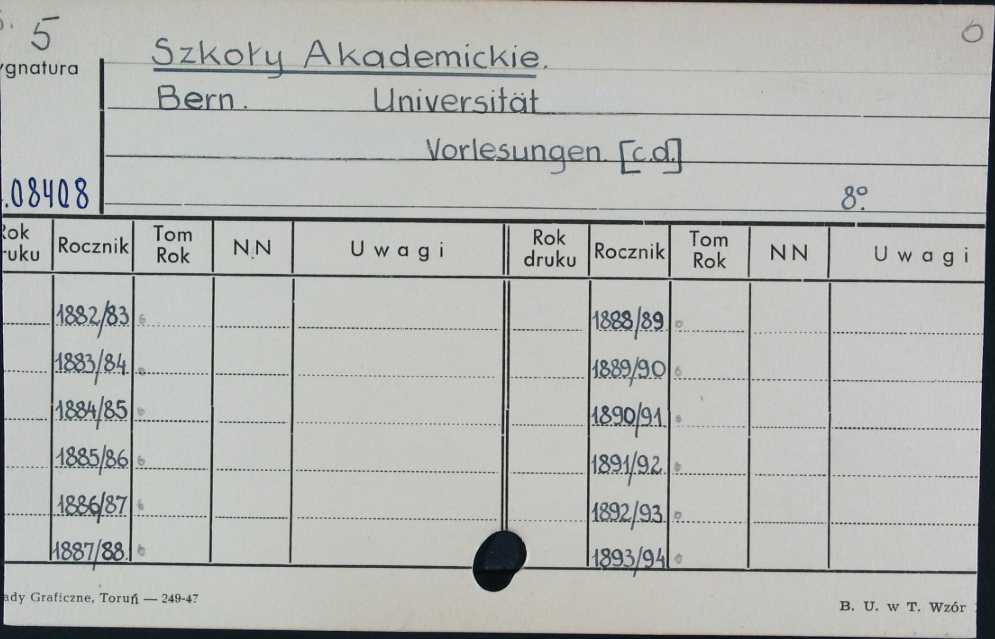 5
Szkoły Akademickie.
ygnatura
Bern. Universität
Vorlesungen. [c.d.]
.08408 8°.
Rok druku Rocznik Tom Rok N.N Uwagi Rok druku Rocznik Tom Rok NN Uwagi
1882/83 1888/89
1883/84 1889/90
1884/85 1890/91
1885/86 1891/92
1886/87 1892/93
1887/88. 1893/94
ady Graficzne, Toruń — 249-47
B. U. w T. Wzór